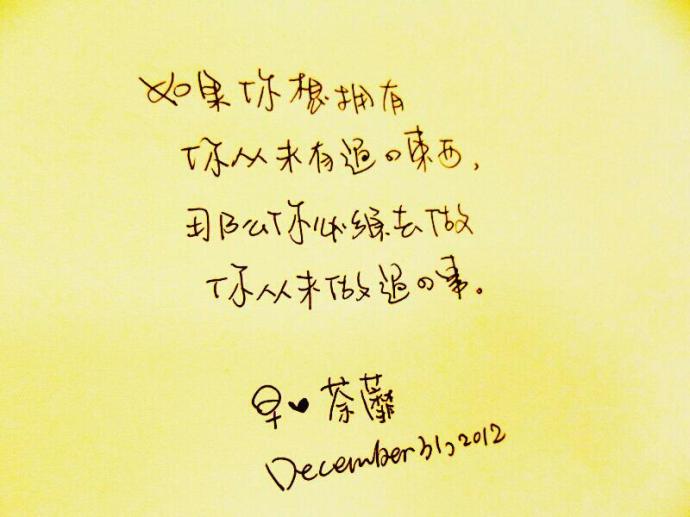 如果你想拥有
你从未有過の東西，
那么你必须去做
你从未做過の事。
早♥荼蘼
December 31, 2012